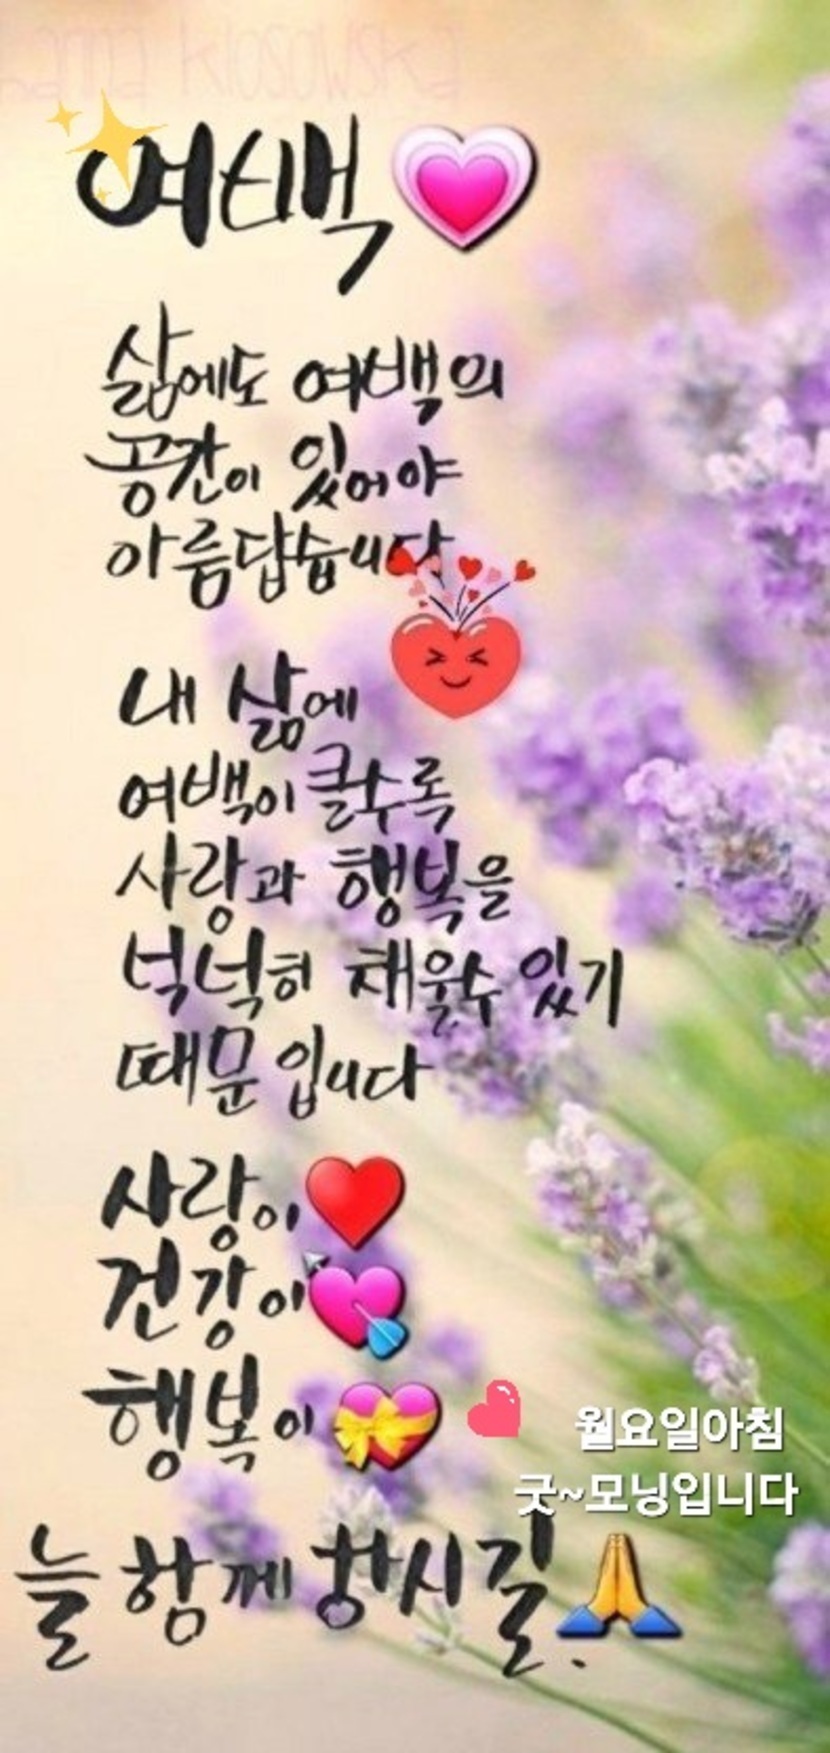 Hanna Klosowska
여백
삶에도 여백의
공간이 있어야
아름답습니다
내 삶에
여백이 클수록
사랑과 행복을
넉넉히 채울수 있기
때문입니다
사랑이
건강이
행복이
월요일아침
굿~모닝입니다
늘 함께 하시길.